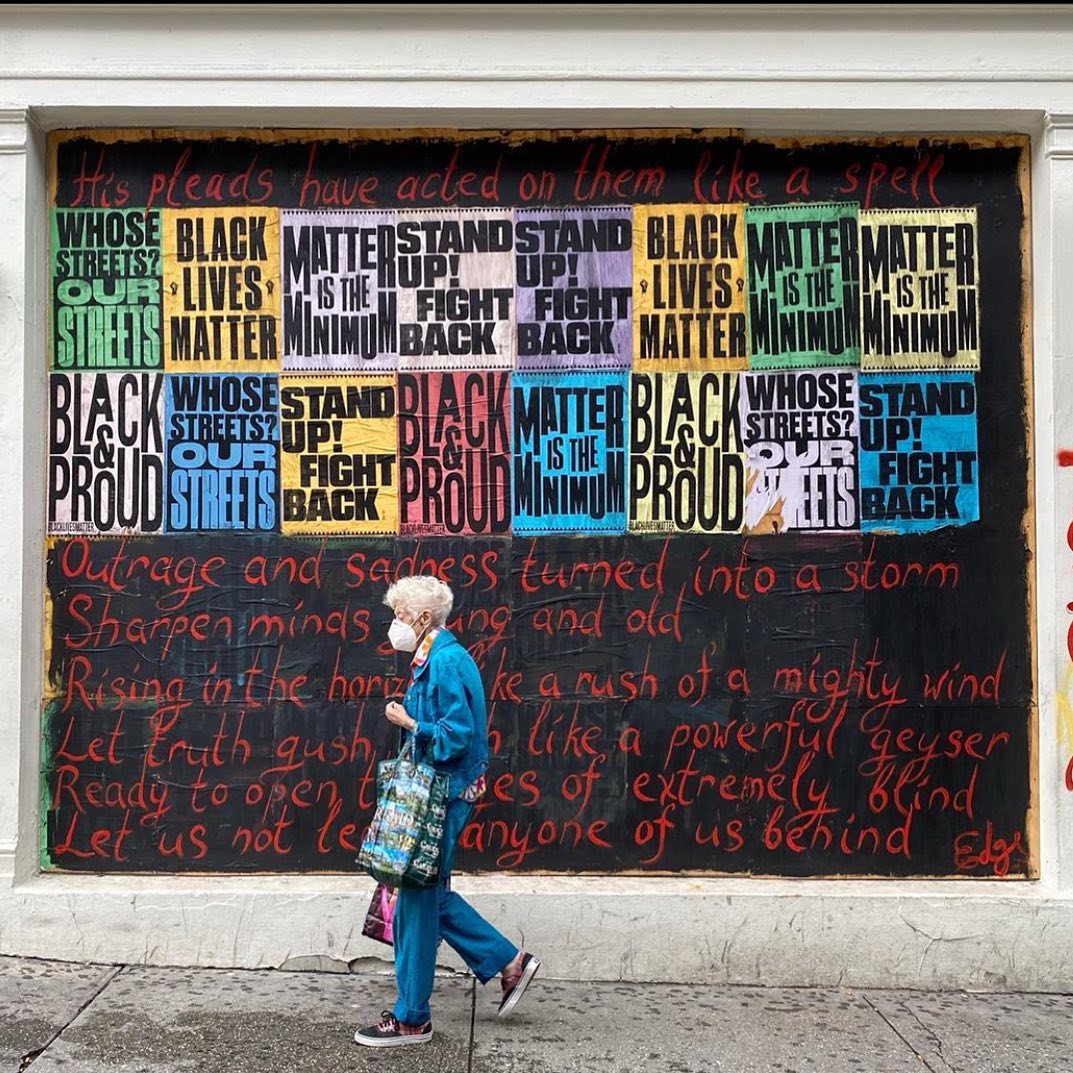 His pleads have acted on them like a spell
WHOSE STREETS? OUR STREETS
BLACK LIVES MATTER
MATTER IS THE MINIMUM
STAND UP! FIGHT BACK
STAND UP! FIGHT BACK
BLACK LIVES MATTER
MATTER IS THE MINIMUM
MATTER IS THE MINIMUM
BLACK & PROUD
#BLACKLIVESMATTER
WHOSE STREETS? OUR STREETS
STAND UP! FIGHT BACK
BLACK & PROUD
#BLACKLIVESMATTER
MATTER IS THE MINIMUM
BLACK & PROUD
#BLACKLIVESMATTER
WHOSE STREETS? OUR
STAND UP! FIGHT BACK
Outrage and sadness turned into a storm
Sharpen minds and old
Rising in the a rush of a mighty wind
Let truth gush like a powerful geyser
Ready to open of extremely blind
Let us not anyone of us behind